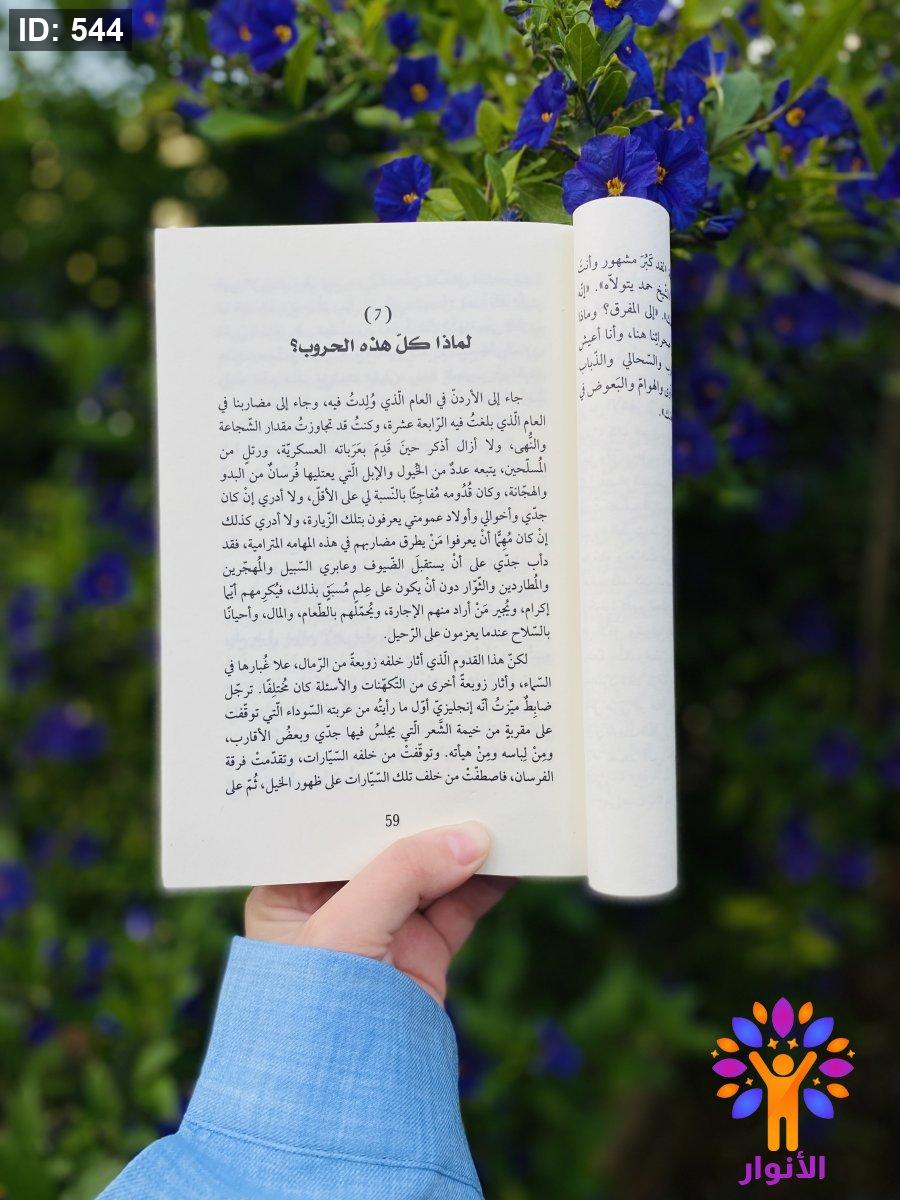 ID: 544
(7)
لماذا كلّ هذه الحروب؟
جاء إلى الأردنّ في العام الّذي وُلِدتُ فيه، وجاء إلى مضاربنا في
العام الّذي بلغتُ فيه الرّابعة عشرة، وكنتُ قد تجاوزتُ مقدار الشّجاعة
والنُّهى، ولا أزال أذكر حينَ قَدِمَ بعَرَباته العسكريّة، ورتلٍ من
المُسلّحين، يتبعه عددٌ من الخُيول والإبل الّتي يعتليها فُرسانٌ من البدو
والهجّانة، وكان قُدُومه مُفاجِئًا بالنّسبة لي على الأقلّ، ولا أدري إنْ كان
جدّي وأخوالي وأولاد عمومتي يعرفون بتلك الزّيارة، ولا أدري كذلك
إنْ كان مُهِمًّا أنْ يعرفوا مَنْ يطرق مضاربهم في هذه المهامه المترامية، فقد
دأب جدّي على أنْ يستقبلَ الضّيوف وعابري السّبيل والمُهجّرين
والمُطاردين والثّوّار دون أنْ يكون على عِلمٍ مُسبَقٍ بذلك، فيُكرِمهم أيّما
إكرام، ويُجير مَنْ أراد منهم الإجارة، ويُحمّلهم بالطّعام، والمال، وأحيانًا
بالسّلاح عندما يعزمون على الرّحيل.
لكنّ هذا القدوم الّذي أثار خلفه زوبعةً من الرّمال، علا غُبارها في
السّماء، وأثار زوبعةً أخرى من التّكهّنات والأسئلة كان مُختلِفًا. ترجّل
ضابِطٌ ميّزتُ أنّه إنجليزيّ أوّل ما رأيتُه من عربته السّوداء الّتي توقّفت
على مقربةٍ من خيمة الشَّعر الّتي يجلسُ فيها جدّي وبعضُ الأقارب،
ومِنْ لِباسه ومِنْ هيأته. وتوقّفتْ من خلفه السّيّارات، وتقدّمتْ فرقة
الفرسان، فاصطفّتْ من خلف تلك السّيّارات على ظهور الخيل، ثُمّ على
59
كَبُرَ مشهور وأنتَ
حمد يتولّاه». «إنّه
«إلى المفرق؟ وماذا
هنا، وأنا أعيش
والسّحالي والذّباب
والهوامّ والبَعوض في
الأنوار